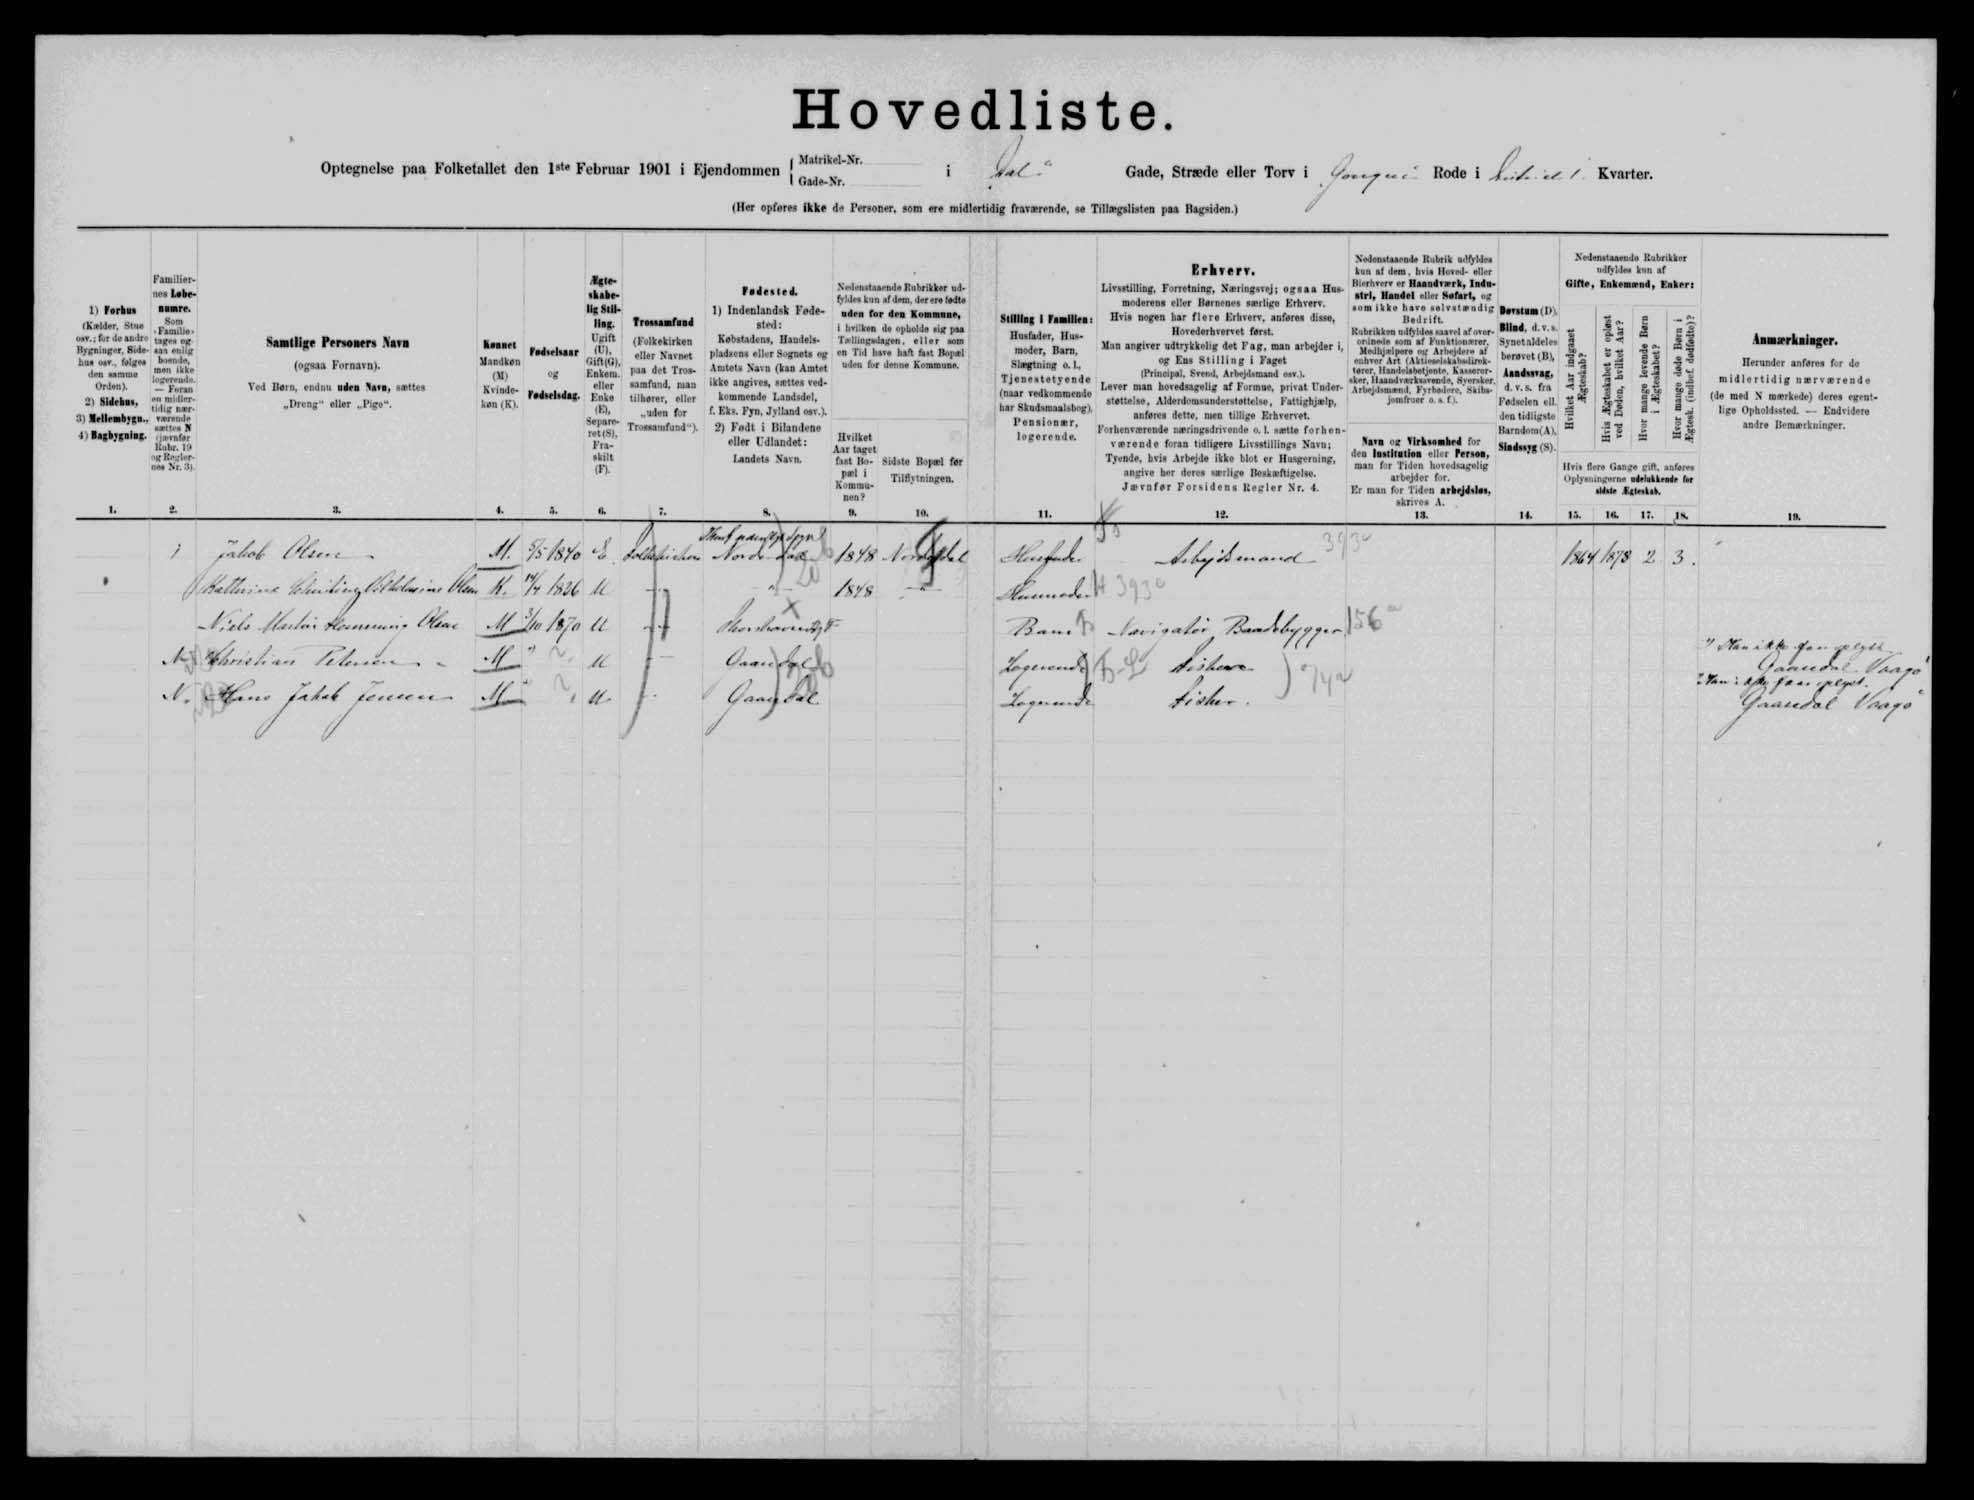 Hovedliste.
Optegnelse paa Folketallet den 1ste Februar 1901 i Ejendommen { Matrikel-Nr. Gade-Nr. i Gade, Stræde eller Torv i Rode i Kvarter.
(Her opføres ikke de Personer, som ere midlertidig fraværende, se Tillægslisten paa Bagsiden.)
1) Forhus
(Kælder, Stue
osv.; for de andre
Bygninger, Side-
hus osv., følges
den samme
Orden).
2) Sidehus,
3) Mellembygn.,
4) Bagbygning.
1.
Familier-
nes Løbe-
numre.
Som
»Familie»
tages og-
saa enlig
boende,
men ikke
logerende.
— Foran
en midler-
tidig nær-
værende
sættes N
(jævnfør
Rubr. 19
og Regler-
nes Nr. 3).
2.
Samtlige Personers Navn
(ogsaa Fornavn).
Ved Børn, endnu uden Navn, sættes
„Dreng" eller „Pige".
3.
Kønnet
Mandkøn
(M)
Kvinde-
køn (K).
4.
Fødselsaar
og
Fødselsdag.
5.
Ægte-
skabe-
lig Stil-
ling.
Ugift
(U),
Gift(G),
Enkem.
eller
Enke
(E),
Separe-
ret (S),
Fra-
skilt
(F).
6.
Trossamfund
(Folkekirken
eller Navnet
paa det Tros-
samfund, man
tilhører, eller
„uden for
Trossamfund").
7.
Fødested.
1) Indenlandsk Føde-
sted:
Købstadens, Handels-
pladsens eller Sognets og
Amtets Navn (kan Amtet
ikke angives, sættes ved-
kommende Landsdel,
f. Eks. Fyn, Jylland osv.).
2) Født i Bilandene
eller Udlandet:
Landets Navn.
8.
Nedenstaaende Rubrikker ud-
fyldes kun af dem, der ere fødte
uden for den Kommune,
i hvilken de opholde sig paa
Tællingsdagen, eller som
en Tid have haft fast Bopæl
uden for denne Kommune.
Hvilket
Aar taget
fast Bo-
pæl i
Kommu-
nen?
9.
Sidste Bopæl før
Tilflytningen.
10.
Stilling i Familien:
Husfader, Hus-
moder, Barn,
Slægtning o. l.,
Tjenestetyende
(naar vedkommende
har Skudsmaalsbog),
Pensionær,
logerende.
11.
Erhverv.
Livsstilling, Forretning, Næringsvej; ogsaa Hus-
moderens eller Børnenes særlige Erhverv.
Hvis nogen har flere Erhverv, anføres disse,
Hovederhvervet først.
Man angiver udtrykkelig det Fag, man arbejder i,
og Ens Stilling i Faget
(Principal, Svend, Arbejdsmand osv.).
Lever man hovedsagelig af Formue, privat Under-
støttelse, Alderdomsunderstøttelse, Fattighjælp,
anføres dette, men tillige Erhvervet.
Forhenværende næringsdrivende o. l. sætte forhen-
værende foran tidligere Livsstillings Navn;
Tyende, hvis Arbejde ikke blot er Husgerning,
angive her deres særlige Beskæftigelse.
Jævnfør Forsidens Regler Nr. 4.
12.
Nedenstaaende Rubrik udfyldes
kun af dem, hvis Hoved- eller
Bierhverv er Haandværk, Indu-
stri, Handel eller Søfart, og
som ikke have selvstændig
Bedrift.
Rubrikken udfyldes saavel af over-
ordnede som af Funktionærer,
Medhjælpere og Arbejdere af
enhver Art (Aktieselskabsdirek-
tører, Handelsbetjente, Kasserer-
sker, Haandværkssvende, Syersker,
Arbejdsmænd, Fyrbødere, Skibs-
jomfruer o. s. f.).
Navn og Virksomhed for
den Institution eller Person,
man for Tiden hovedsagelig
arbejder for.
Er man for Tiden arbejdsløs,
skrives A.
13.
Døvstum (D),
Blind, d. v. s.
Synet aldeles
berøvet (B),
Aandssvag,
d. v. s. fra
Fødselen ell.
den tidligste
Barndom (A),
Sindssyg (S).
14.
Nedenstaaende Rubrikker
udfyldes kun af
Gifte, Enkemænd, Enker:
Hvilket Aar indgaaet
Ægteskab?
Hvis Ægteskabet er opløst
ved Døden, hvilket Aar?
Hvor mange levende Børn
i Ægteskabet?
Hvor mange døde Børn i
Ægtesk. (indbef. dødfødte)?
Hvis flere Gange gift, anføres
Oplysningerne udelukkende for
sidste Ægteskab.
15. 16. 17. 18.
Anmærkninger.
Herunder anføres for de
midlertidig nærværende
(de med N mærkede) deres egent-
lige Opholdssted. — Endvidere
andre Bemærkninger.
19.
1 Jakob Olsen M. 5/5 1840 E Folkekirken 1848 Husfader Arbejdsmand 1864 1878 2 3.
Olsen K. 14/4 1826 U 1848 Husmoder
Niels Martin Hemming Olsen M 3/10 1870 U Barn Navigatør, Baadebygger
N. Christian Petersen M ? U Gaasedal Logerende Fisher
Gaasedal Vaagø
N. Hans Jakob Jensen M ? U Gaasedal Logerende Fisher.
Gaasedal Vaagø